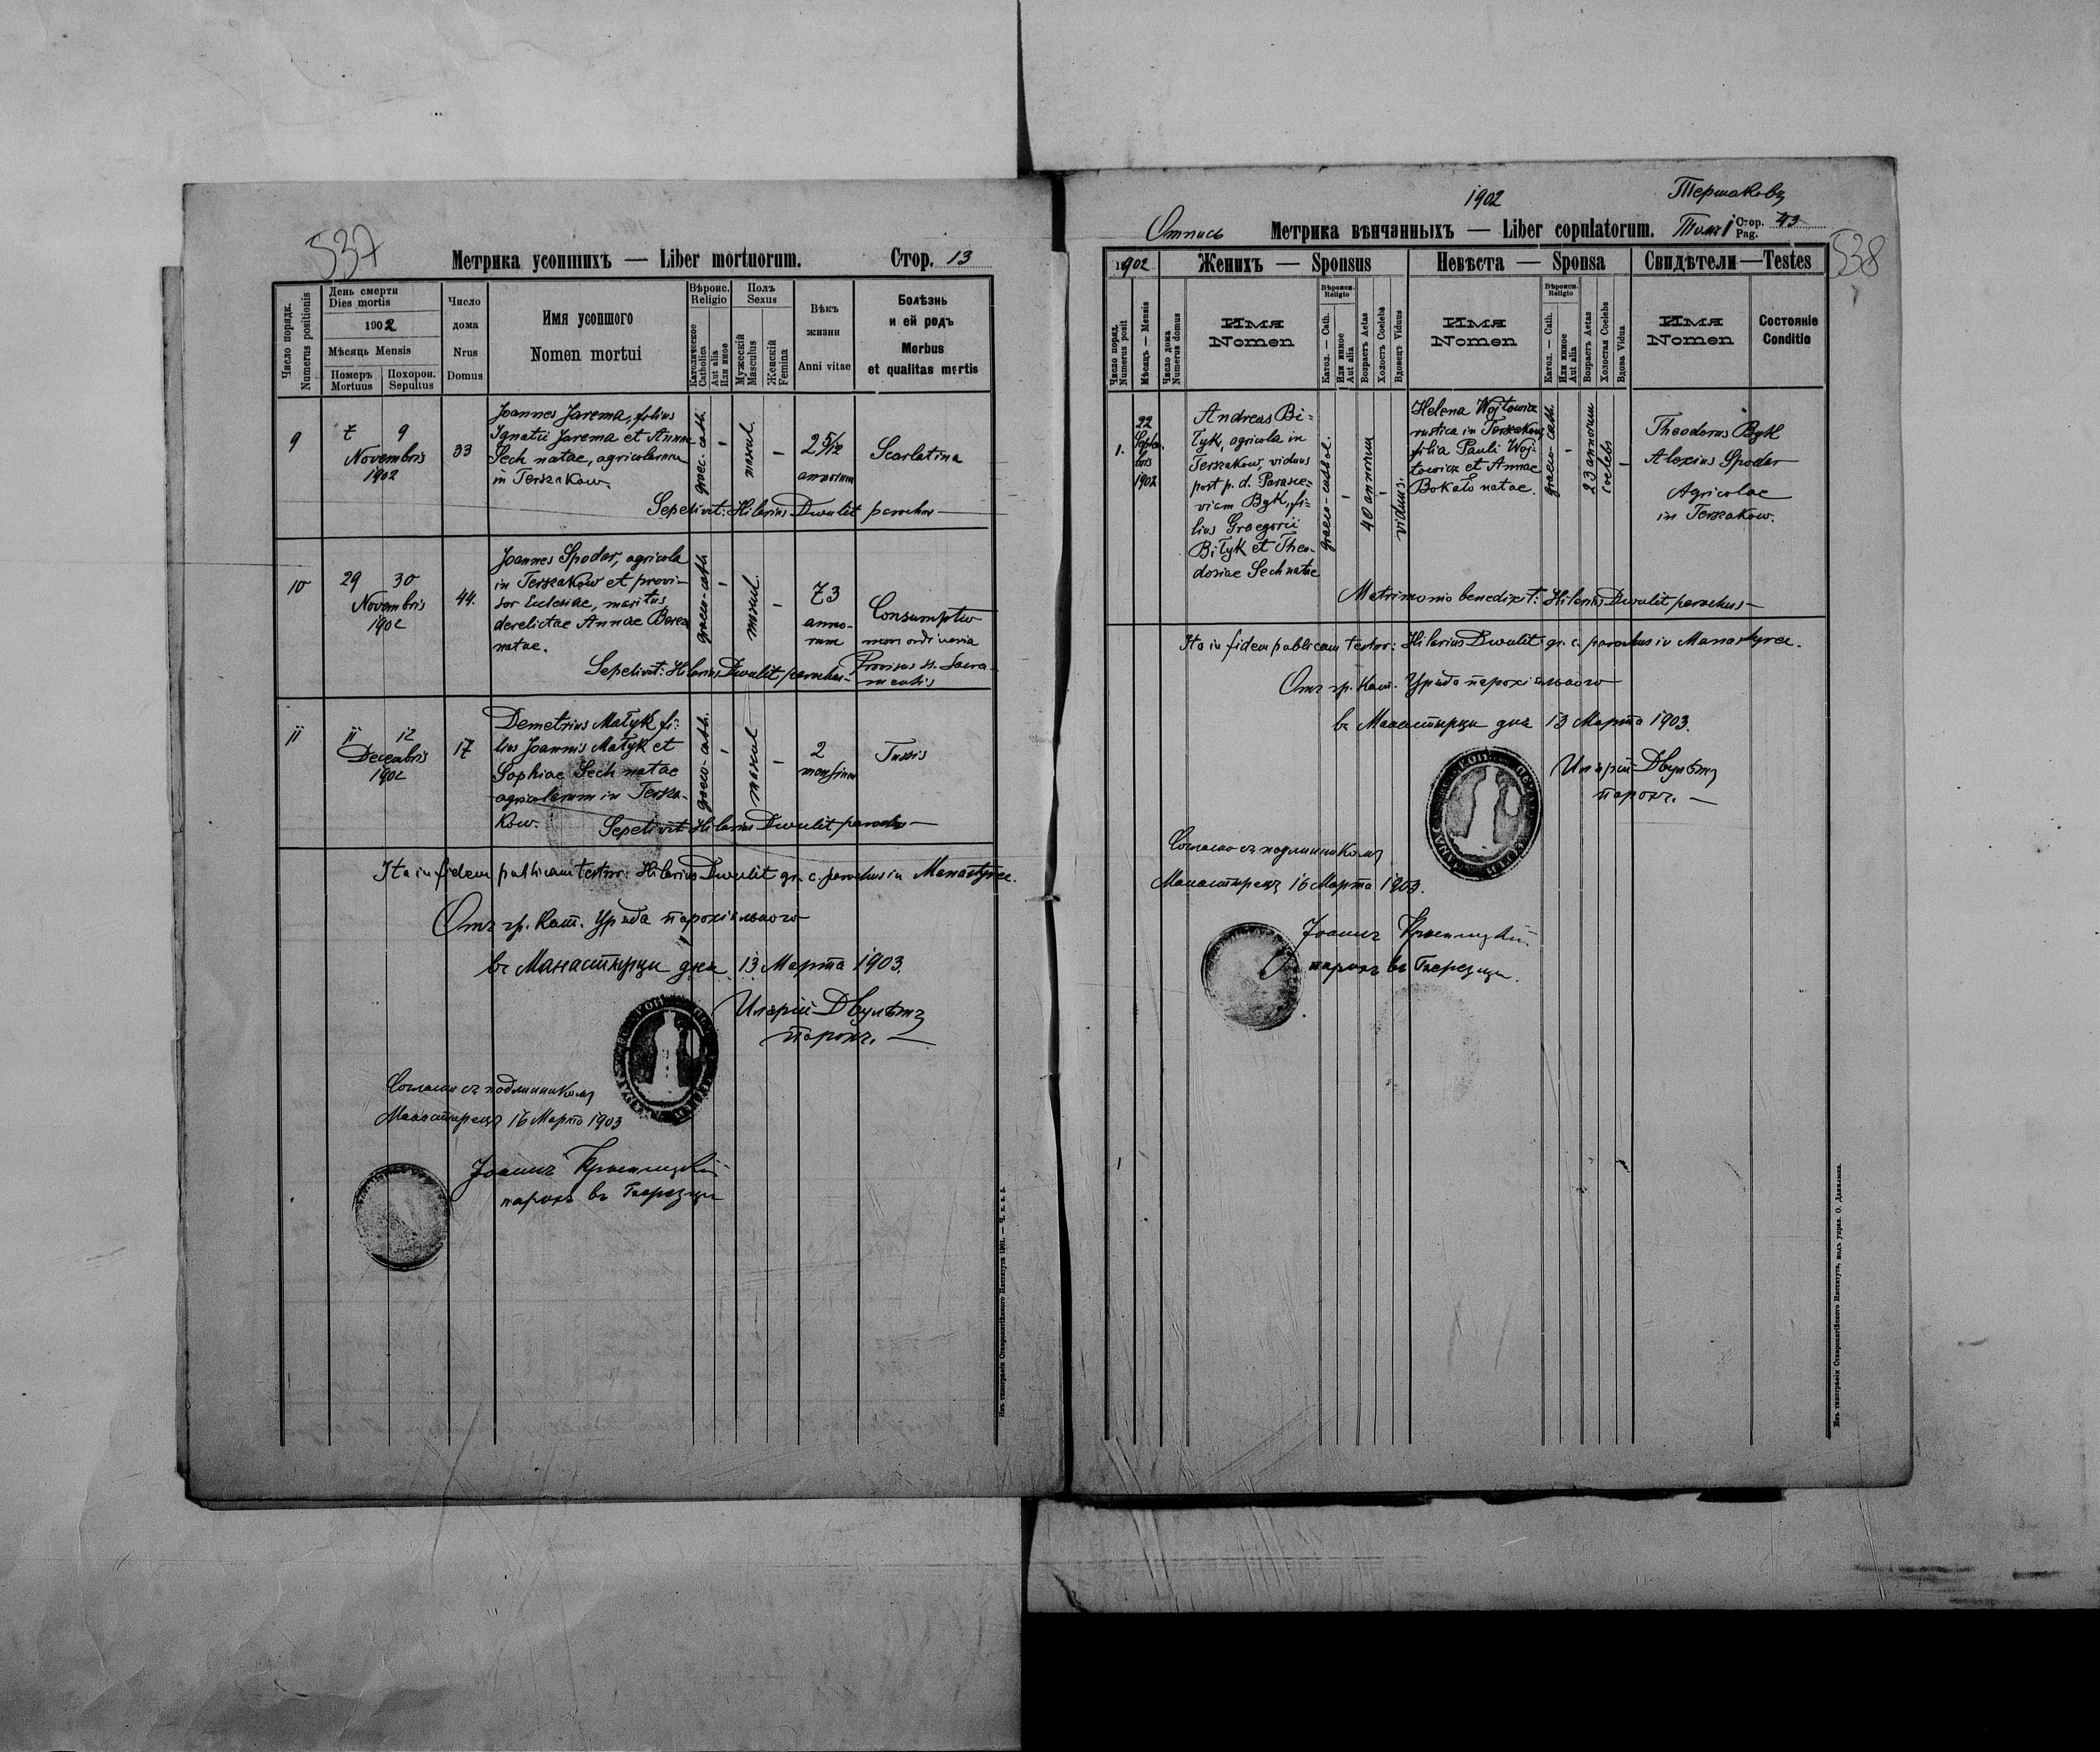 537
Метрика усопшихъ — Liber mortuorum. Стор. 13
Число порядк.
Numerus positionis
День смерти
Dies mortis
1902
Мѣсяць Mensis
Померъ
Mortuus
Похорон.
Sepultus
Число
дома
Nrus
Domus
Имя усопшого
Nomen mortui
Вѣроис.
Religio
Католическое
Catholica
Aut alia
Или иное
Полъ
Sexus
Мужескій
Masculus
Женскій
Femina
Вѣкъ
жизни
Anni vitae
Болѣзнь
и ей родъ
Morbus
et qualitas mortis
9
7 9
Novembris
1902
33
Joannes Jarema, filius
Ignatii Jarema et Annae
Sech natae, agricolarum
in Terszakow.
graec.-cath.
-
mascul.
-
2 5/12
annorum
Scarlatina
Sepelivit: Hilarius Dwulit parochus —
10
29 30
Novembris
1902
44.
Joannes Spodar, agricola
in Terszakow et provi-
sor Ecclesiae, maritus
derelictae Annae Bereza
natae.
graeco-cath
-
mascul.
-
73
anno-
rum
Consumptio
non ordinaria
Provisus ss. Sacra-
mentis
Sepelivit: Hilarius Dwulit parochus-
11
11 12
Decembris
1902
17
Demetrius Małyk fi-
lius Joannis Małyk et
Sophiae Sech natae
agricolarum in Tersza-
kow.
graeco-cath.
-
mascul
-
2
mensium
Tussis
Sepelivit Hilarius Dwulit parochus —
Ita in fidem publicam testor: Hilarius Dwulit gr. c. parochus in Manastyrec.
Отъ гр. кат. Уряда парохіяльного
въ Манастырци дня 13 Марта 1903.
Иларій Двулѣтъ
парохъ. —
Согласно съ подлинникомъ
Манастырець 16 Марта 1903
Іоаннъ
парохъ въ
Изъ типографіи Ставропигійского Института 1901. —
1902
Тершаковъ
Отпись Метрика вѣнчанныхъ — Liber copulatorum. Томъ I Стор. 43
Pag.
538
1902
Женихъ — Sponsus
Невѣста — Sponsa
Свидѣтели — Testes
Число поряд.
Numerus posit
Мѣсяць — Mensis
Число дома
Numerus domus
Имя
Nomen
Вѣроисп.
Religio
Катол. — Cath.
Или иное
Aut alia
Возрастъ Aetas
Холостъ Coelebs
Вдовець Viduus
Имя
Nomen
Вѣроисп.
Religio
Катол. — Cath.
Или иное
Aut alia
Возрастъ Aetas
Холостая Coelebs
Вдова Vidua
Имя
Nomen
Состояніе
Conditio
1.
22
Septem
bris
1902
Andreas Bi=
łyk, agricola in
Terszakow, viduus
post p. d. Parasce=
viam Byk, fi=
lius Gregorii
Biłyk et Theo-
dosiae Sech natae
graeco-cathol.
-
40 annorum
-
viduus.
Helena Wojtowicz
rustica in Terszakow,
filia Pauli Woj-
towicz et Annae
Bokało natae.
graeco-cath.
-
23 annorum
coelebs
-
Theodorus Byk
Alexius Spodar
Agricolae
in Terszakow.
Matrimonio benedixit: Hilarius Dwulit parochus —
Ita in fidem publicam testor: Hilarius Dwulit gr. c. parochus in Manastyrec.
Отъ гр. кат. Уряда парохіяльного
въ Манастырци дня 13 Марта 1903.
Иларій Двулѣтъ
парохъ. —
Согласно съ подлинникомъ
Манастырець 16 Марта 1903.
Іоаннъ
парохъ въ
Изъ типографіи Ставропигійского Института, подъ управ. О. Данилюка